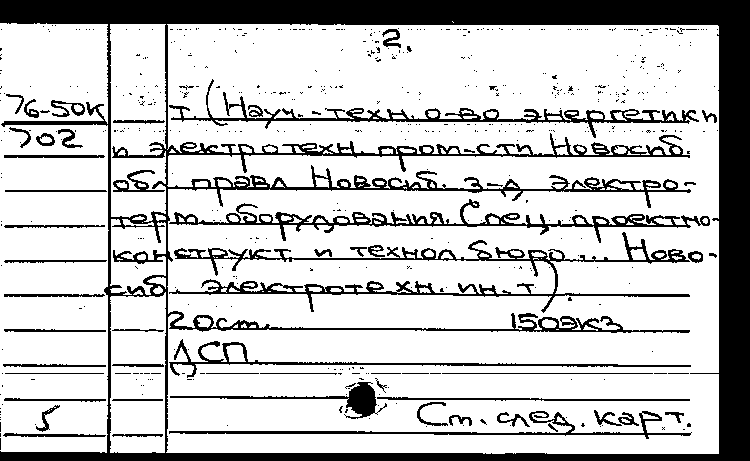 2.
76-50К т. (Науч.-техн. о-во энергетики
702 и электротехн. пром-сти. Новосиб.
обл. правл Новосиб. з-д электро-
терм. оборудования. Спец. проектно-
конструкт. и технол. бюро... Ново-
сиб. электротехн. ин.-т).
20ст. 150экз
ДСП.
5 См. след. карт.